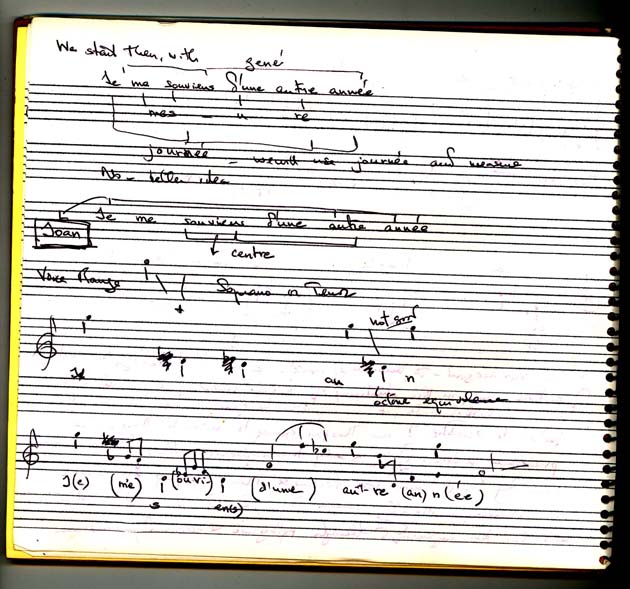 We start then, with gené
Je me souviens d'une autre année
mes - u re
journée - would use journée and mesure
No - better idea
Je me souviens d'une autre année
Joan
centre
Voice Range Soprano or Tenor
not
Je an n
octave equivalence
J(e) (me) s (ouvi) en(s) (d'une) aut-re (an) n (ée)